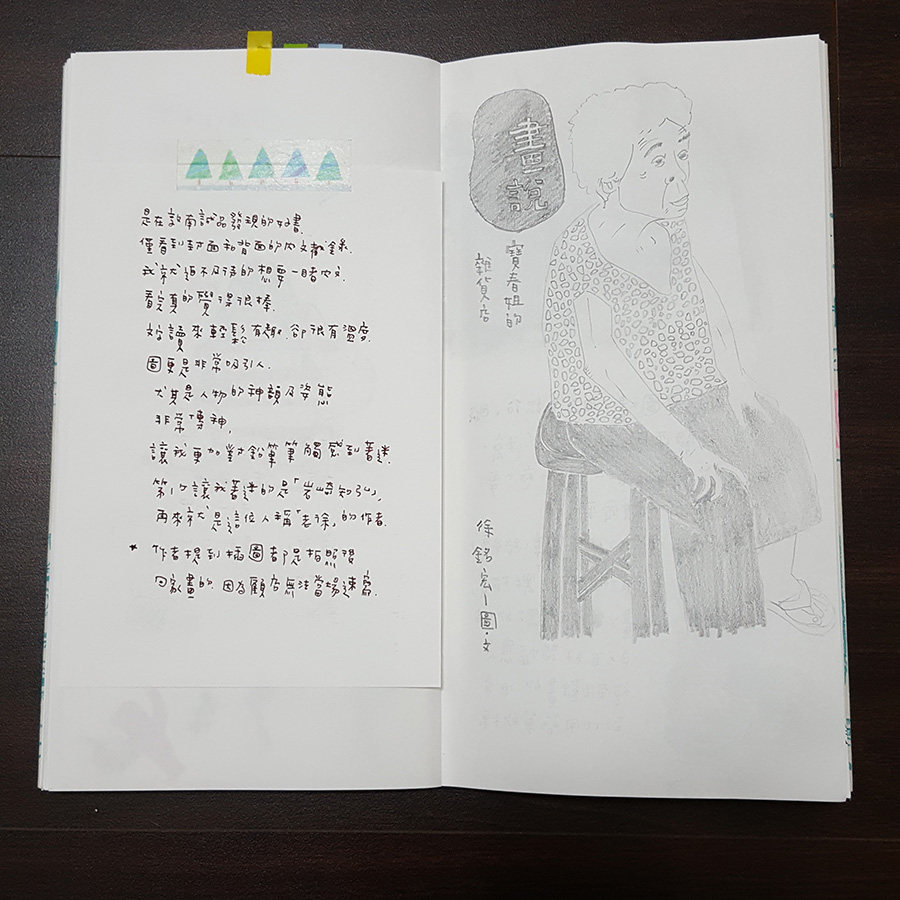 是在敦南誠品發現的好書.
僅看到封面和背面的內文截錄.
我就迫不及待的想要一睹內文.
看完真的覺得很棒.
文字讀來輕鬆有趣.卻很有溫度.
圖更是非常吸引人.
尤其是人物的神韻及姿態
非常傳神,
讓我更加對鉛筆筆觸感到著迷.
第1次讓我著迷的是「岩崎知弘」,
再來就是這位人稱「老徐」的作者.
* 作者提到插圖都是拍照後
回家畫的.因為顧店無法當場速寫.
畫說
寶春姐的
雜貨店
徐銘宏|圖・文